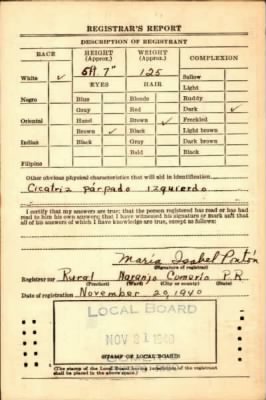 REGISTRAR'S REPORT
DESCRIPTION OF REGISTRANT
RACE HEIGHT (Approx.) WEIGHT (Approx.) COMPLEXION
5ft. 7" 125
White ✓ Sallow
EYES HAIR Light
Negro Blue Blonde Ruddy
Gray Red Dark ✓
Oriental Hazel Brown ✓ Freckled
Brown ✓ Black Light brown
Indian Black Gray Dark brown
Bald Black
Filipino
Other obvious physical characteristics that will aid in identification
Cicatriz párpado izquierdo
I certify that my answers are true; that the person registered has read or has had
read to him his own answers; that I have witnessed his signature or mark and that
all of his answers of which I have knowledge are true, except as follows:
Maria Isabel
(Signature of registrar)
Registrar for Rural Naranjo Comerio P.R.
(Precinct) (Ward) (City or county) (State)
Date of registration November 20, 1940
LOCAL BOARD
NOV 21 1940
STAMP OF LOCAL BOARD
(The stamp of the Local Board having jurisdiction of the registrant
shall be placed in the above space.)